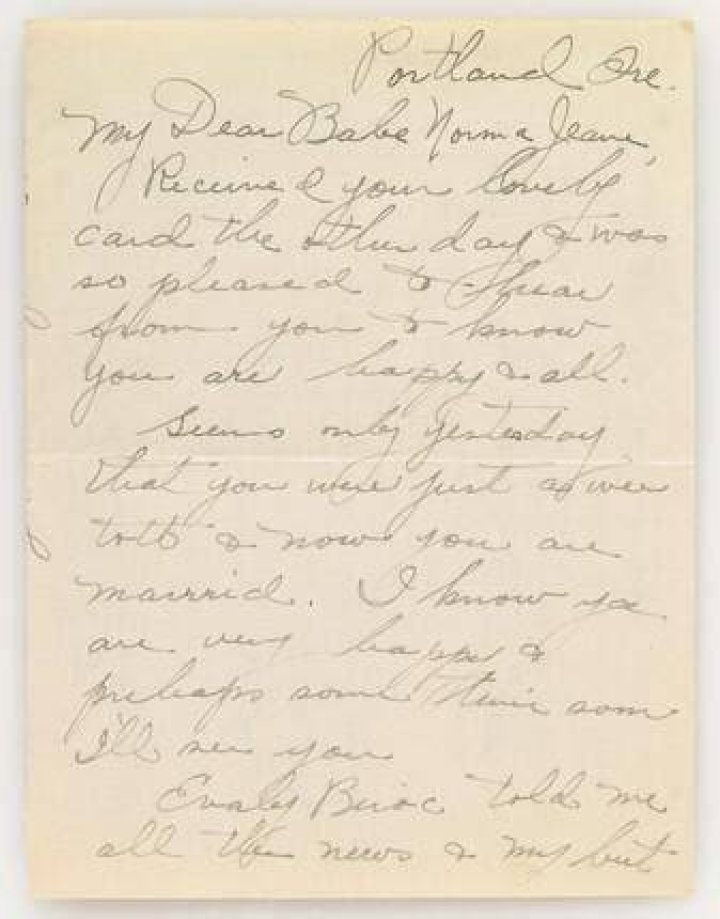 Portland Ore.
My Dear Babe Norma Jeane,
Received your lovely
card the other day & was
so pleased to hear
from you & know
you are happy & all.
Seems only yesterday
that you were just a wee
tott & now you are
married. I know you
are very happy &
perhaps some time soon
I'll see you
told me
all the news & my but